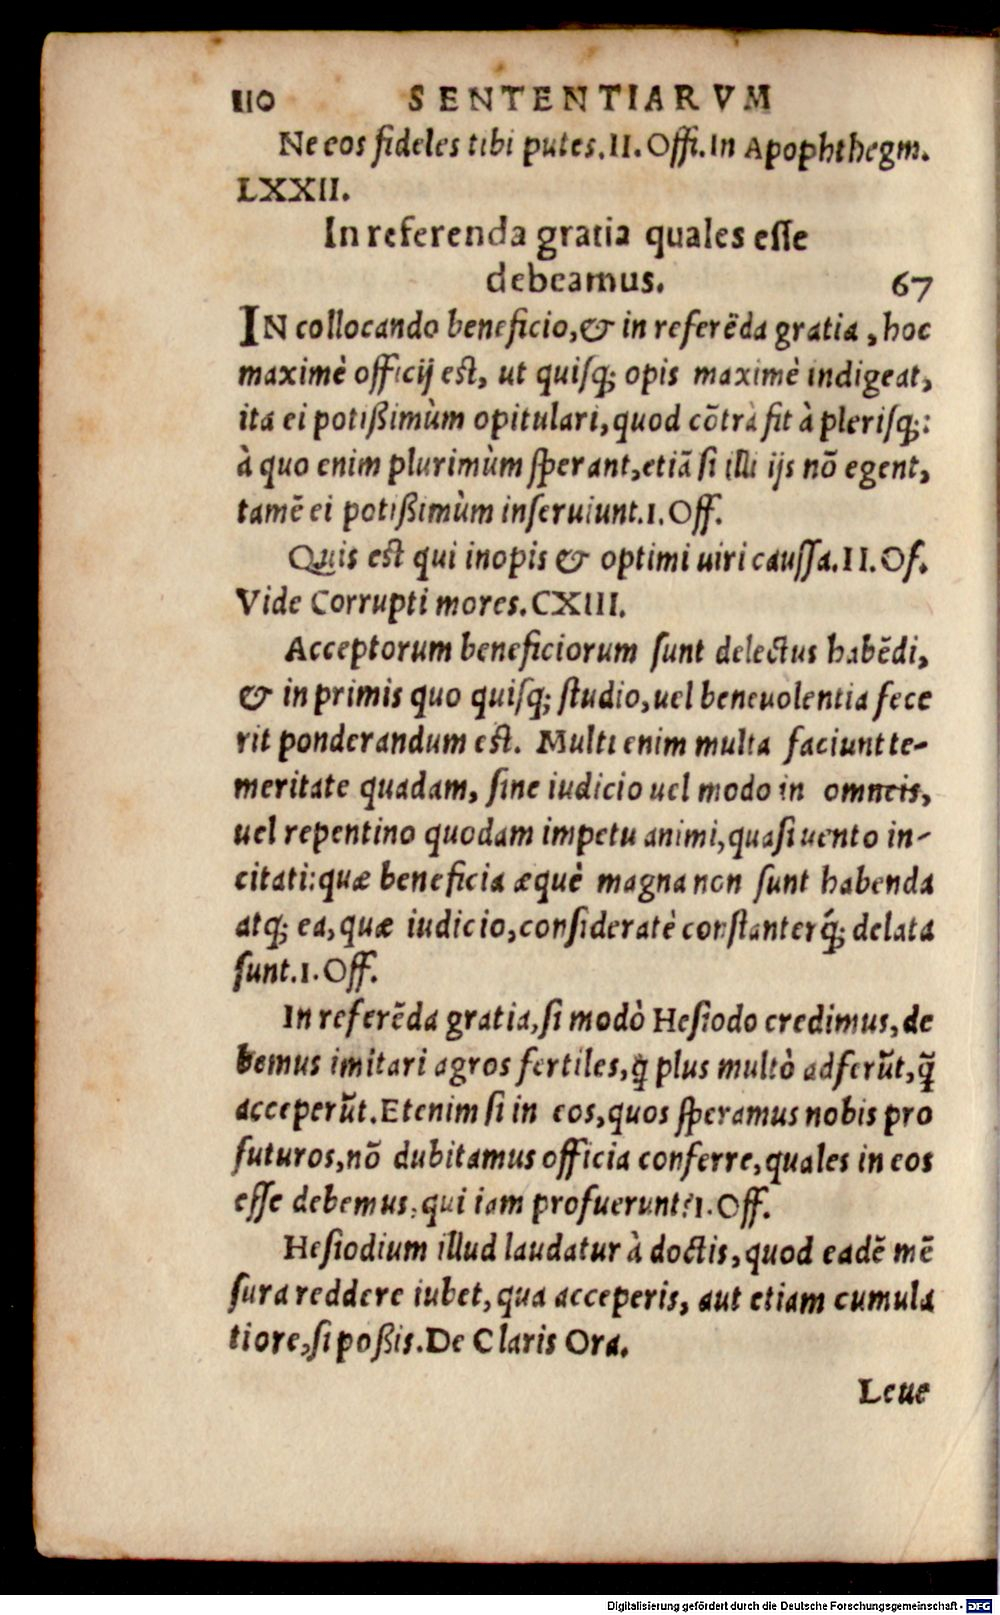 110 SENTENTIARVM
Ne eos fideles tibi putes. II. Offi. In Apophthegm.
LXXII.
In referenda gratia quales eſſe
debeamus. 67
IN collocando beneficio, & in referēda gratia, hoc
maximè officij est, ut quiſq; opis maximè indigeat,
ita ei potißimùm opitulari, quod cōtrà fit à pleriſq;:
à quo enim plurimùm ſperant, etiā ſi illi ijs nō egent,
tamē ei potißimùm inſeruiunt. I. Off.
Quis est qui inopis & optimi uiri cauſſa. II. Of.
Vide Corrupti mores. CXIII.
Acceptorum beneficiorum ſunt delectus habēdi,
& in primis quo quiſq; ſtudio, uel beneuolentia fece
rit ponderandum est. Multi enim multa faciunt te-
meritate quadam, ſine iudicio uel modo in omneis,
uel repentino quodam impetu animi, quaſi uento in-
citati: quæ beneficia æquè magna non ſunt habenda
atq; ea, quæ iudicio, conſideratè conſtanterq́; delata
ſunt. I. Off.
In referēda gratia, ſi modò Heſiodo credimus, de
bemus imitari agros fertiles, q̄ plus multò adferūt, q̄̃
acceperūt. Etenim ſi in eos, quos ſperamus nobis pro
futuros, nō dubitamus officia conferre, quales in eos
eſſe debemus, qui iam profuerunt? I. Off.
Heſiodium illud laudatur à doctis, quod eadē mē
ſura reddere iubet, qua acceperis, aut etiam cumula
tiore, ſi poßis. De Claris Ora.
Leue
Digitalisierung gefördert durch die Deutsche Forschungsgemeinschaft - DFG